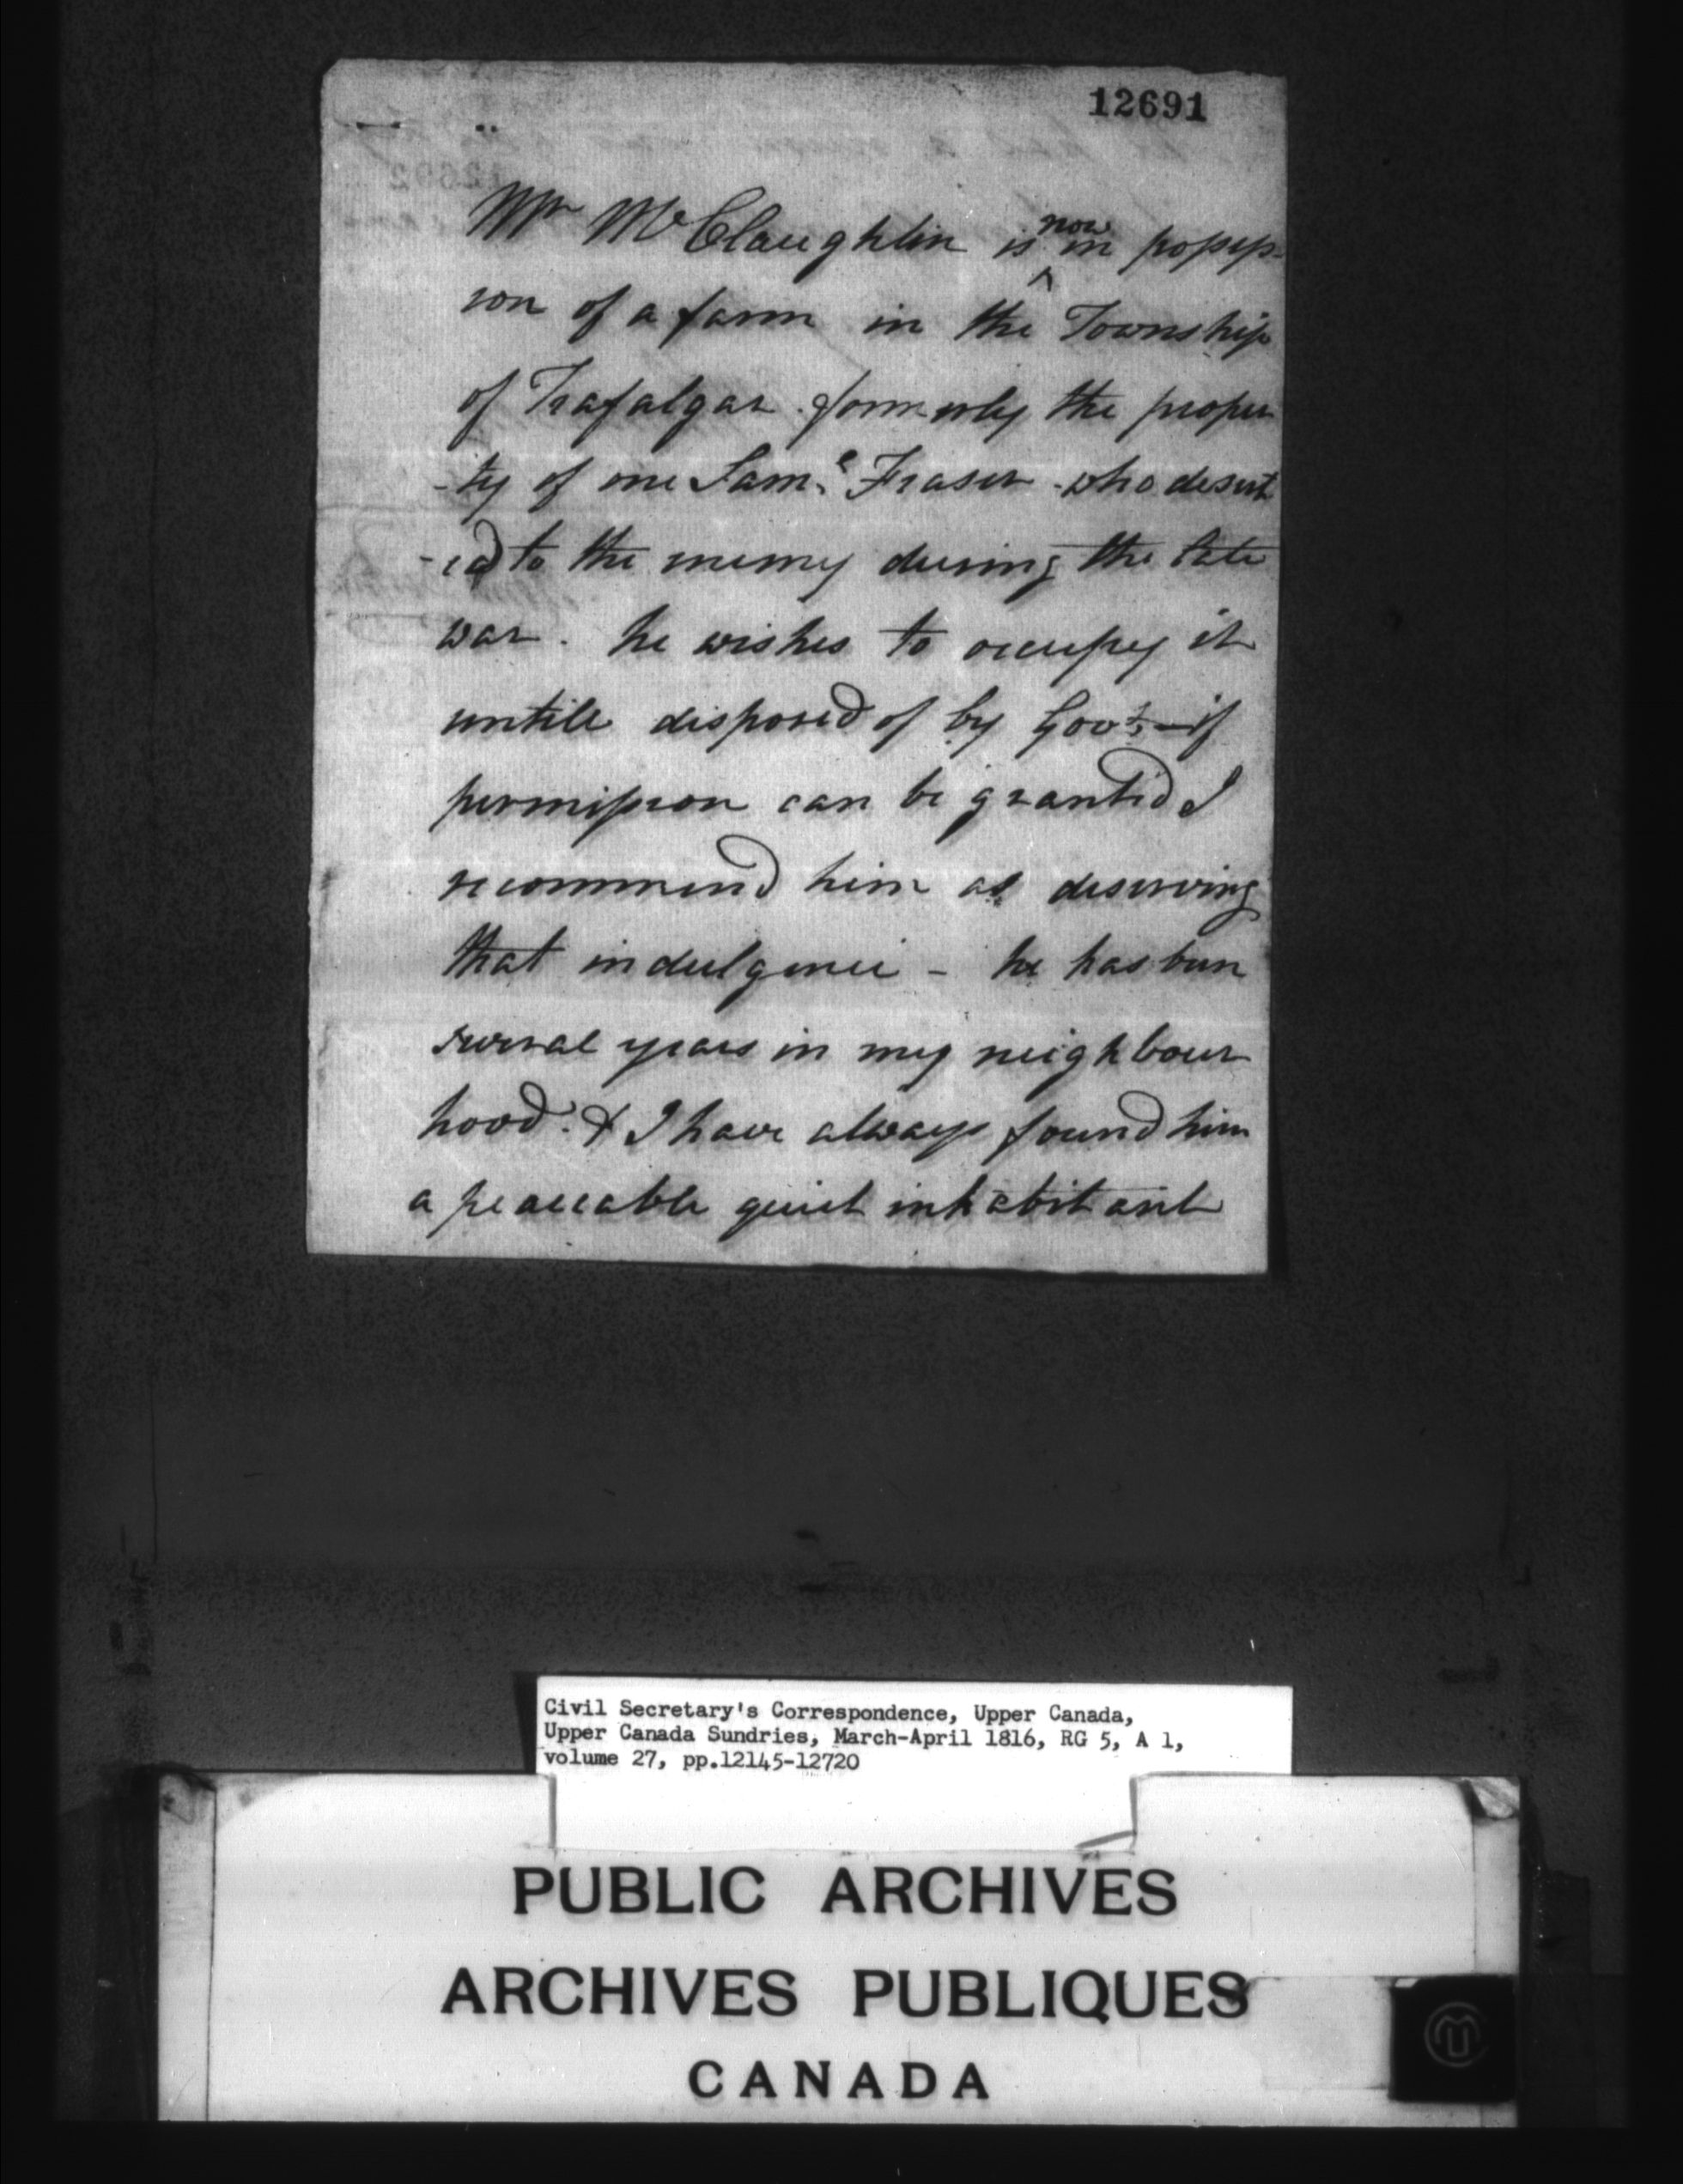 12691
Mr McClaughlin is now in possess-
ion of a farm in the Township
of Trafalgar formerly the proper
-ty of one Saml. Fraser who desert
-ed to the enemy during the late
war. he wishes to occupy it
untill disposed of by Govt. - if
permission can be granted I
recommend him as deserving
that indulgence - he has been
several years in my neighbour
hood. & I have always found him
a peaceable quiet inhabitant
Civil Secretary's Correspondence, Upper Canada,
Upper Canada Sundries, March-April 1816, RG 5, A 1,
volume 27, pp.12145-12720
PUBLIC ARCHIVES
ARCHIVES PUBLIQUES
CANADA